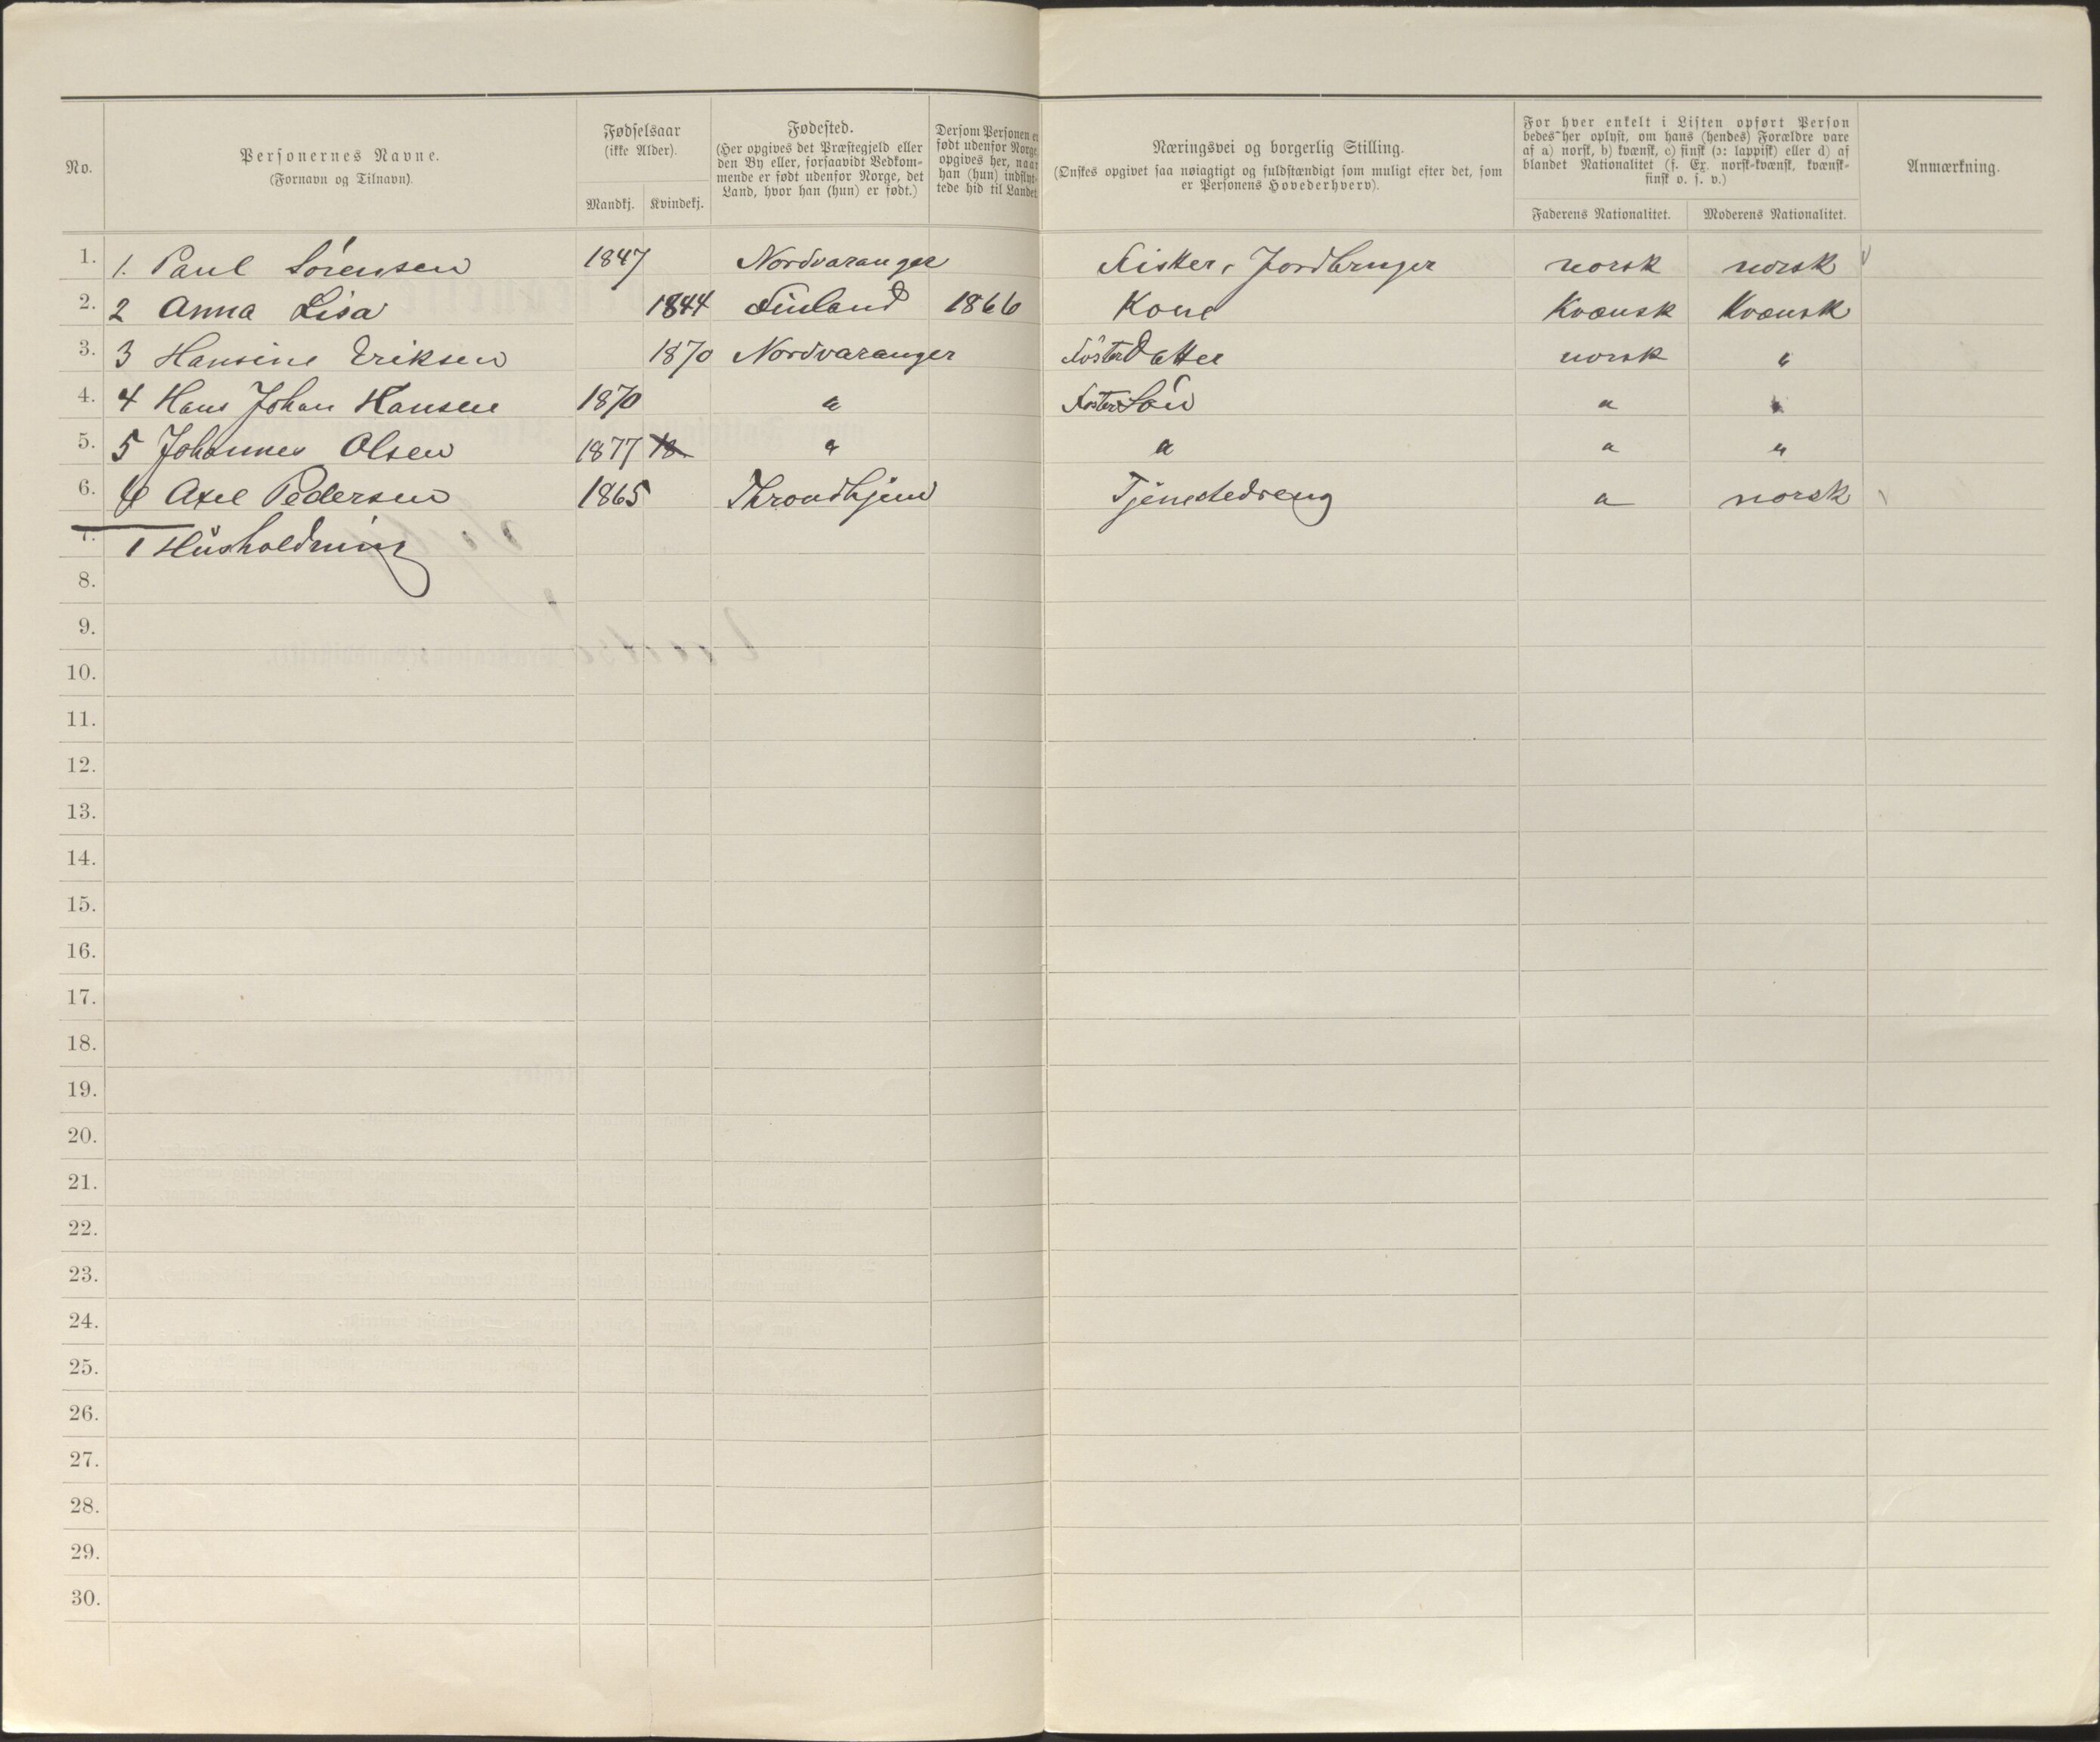 No.
Personernes Navne.
(Fornavn og Tilnavn).
Fødselsaar
(ikke Alder).
Mandkj. Kvindekj.
Fødested.
(Her opgives det Præstegjeld eller
den By eller, forsaavidt Vedkom-
mende er født udenfor Norge, det
Land, hvor han (hun) er født.)
Dersom Personen er
født udenfor Norge,
opgives her, naar
han (hun) indflyt-
tede hid til Landet
Næringsvei og borgerlig Stilling.
(Ønskes opgivet saa nøiagtigt og fuldstændigt som muligt efter det, som
er Personens Hovederhverv).
For hver enkelt i Listen opført Person
bedes her oplyst, om hans (hendes) Forældre vare
af a) norsk, b) kvænsk, c) finsk (ɔ: lappisk) eller d) af
blandet Nationalitet (f. Ex. norsk-kvænsk, kvænsk-
finsk o. s. v.)
Faderens Nationalitet. Moderens Nationalitet.
Anmærkning.
1. 1. Paul Sörensen 1847 Nordvaranger Fisker, Jordbruger norsk norsk
2. 2 Anna Lisa 1844 Finland 1866 Kone Kvænsk Kvænsk
3. 3 Hansine Eriksen 1870 Nordvaranger FösterDatter norsk "
4. 4 Hans Johan Hansen 1870 " FosterSön " "
5. 5 Johannes Olsen 1877 18 " " " "
6. 6 Axel Pedersen 1865 Throndhjem Tjenestedreng " norsk
7. 1 Husholdning
8.
9.
10.
11.
12.
13.
14.
15.
16.
17.
18.
19.
20.
21.
22.
23.
24.
25.
26.
27.
28.
29.
30.